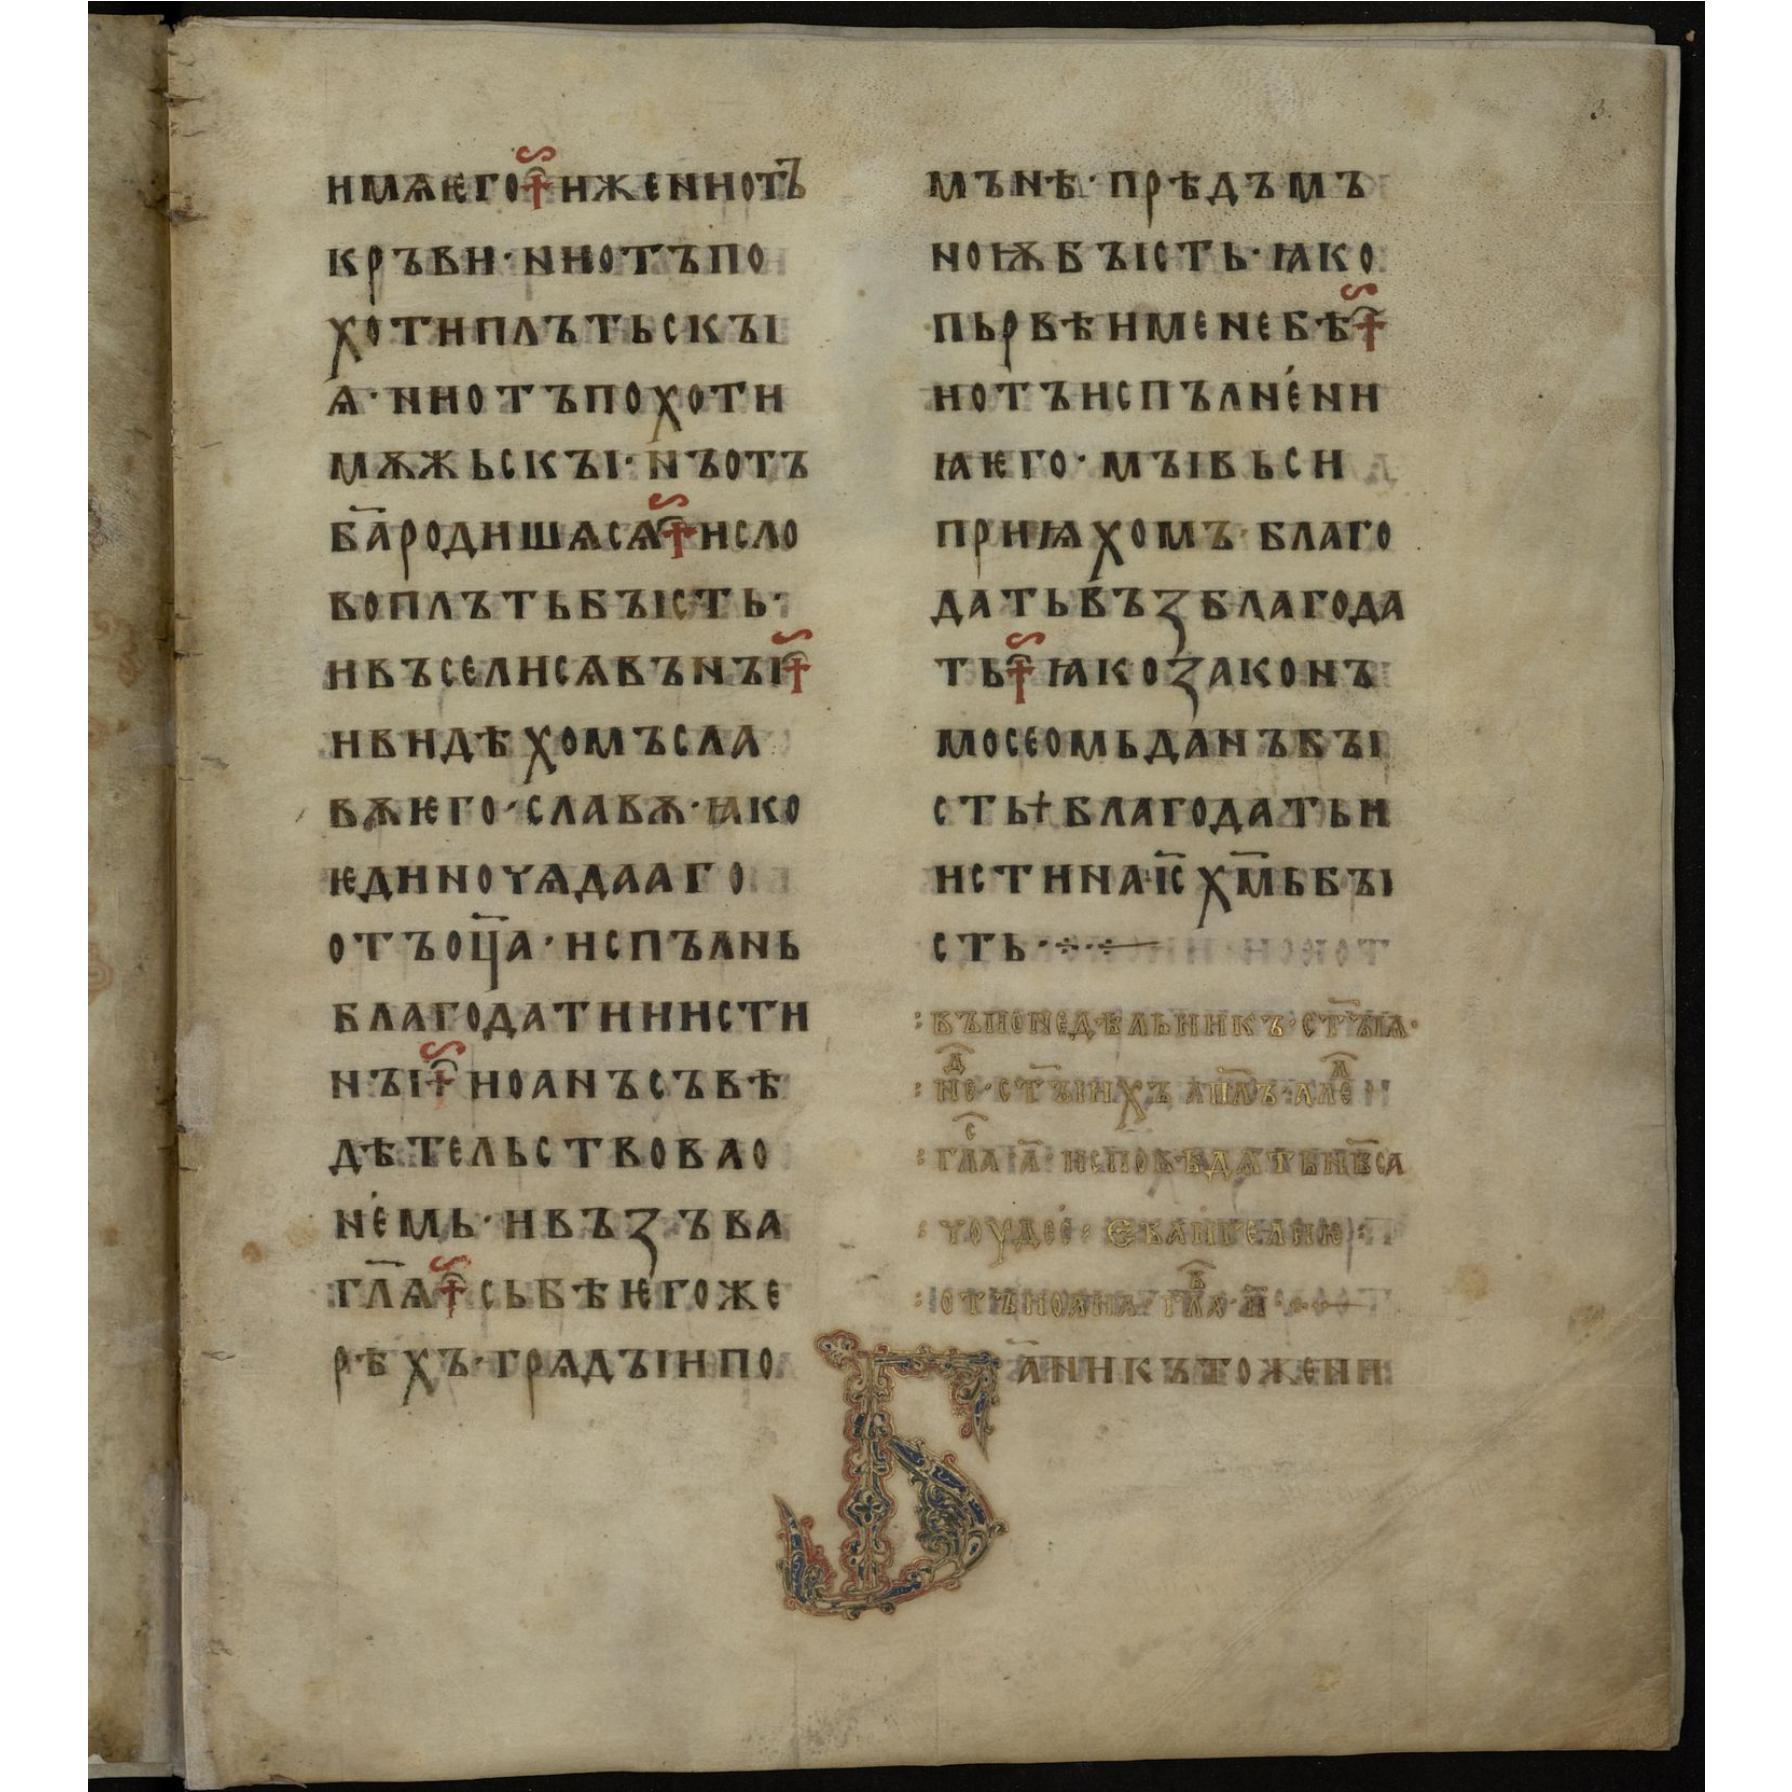 имѧѥго иже ни отъ
кръви · ни отъ по
хоти плътьскꙑ
ѧ · ни отъ похоти
мѫжьскꙑ · нъ отъ
б҃а родишѧсѧ и сло
во плъть бꙑсть ·
и въселисѧ въ нꙑ
и видѣхомъ сла
вѫ ѥго · славѫ · ꙗко
ѥдиночѧдааго
отъ оц҃а · испълнь
благодати и исти
нꙑ иоанъ съвѣ
дѣтельствова о
немь · и възъва
гл҃ѧ сь бѣ ѥгоже
рѣхъ · грѧдꙑи по
мънѣ · прѣдъ мъ
ноѭ бꙑсть · ꙗко
пьрвѣи мене бѣ
и отъ испълнени
ꙗ ѥго · мꙑ вьси
приѩхомъ · благо
дать въꙁ благода
ть ꙗко ꙁаконъ
мосеомь данъ бꙑ
сть † благодать и
истина іс҃ хм҃ь бꙑ
сть · ÷ ·
: въ понедѣльникъ · ст҃ꙑꙗ ·
: нед · ст҃ꙑихъ ап҃лъ · але
: глас а҃ · исповѣдѧть нб҃са
: чоудеса : Еваньгелиѥ :
: отъ иоана · гла҃в · и҃ ·
Б҃а никътоже ни
3.